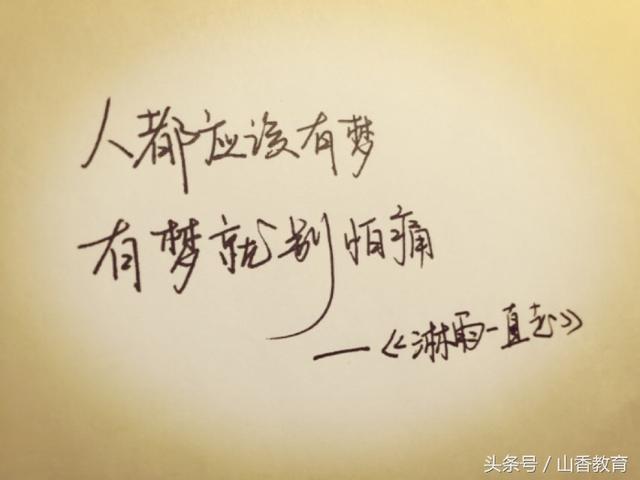 人都应该有梦
有梦就别怕痛
—《淋雨一直走》
头条号／山香教育